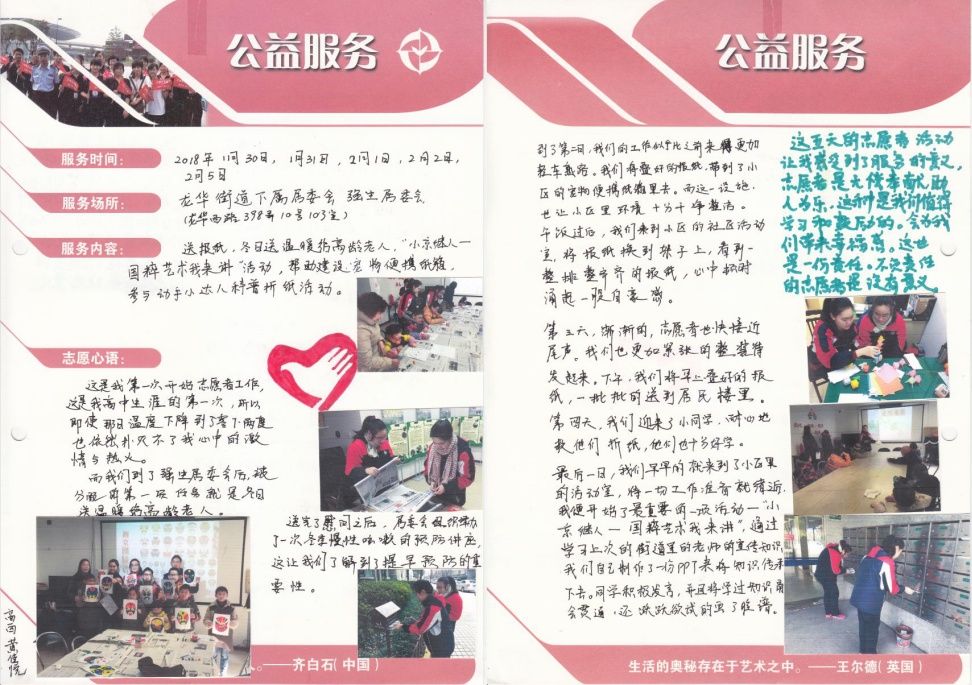 公益服务
服务时间：
2018年1月30日，1月31日，2月1日，2月2日，
2月5日
服务场所：
龙华街道下属居委会 强生居委会
(龙华西路398弄10号103室)
服务内容：
送报纸，冬日送温暖给高龄老人，“小京继人—
国粹艺术我来讲”活动，帮助建设宠物便携纸箱，
参与动手小达人科普折纸活动。
志愿心语：
这是我第一次开始志愿者工作，
这是我高中生涯的第一次，所以
即使那日温度下降到了零下两度
也依然扑灭不了我心中的激
情与热火。
而我们到了强生居委会后，被
分配的第一项任务就是冬日
送温暖给高龄老人。
送完了慰问之后，居委会组织举办
了一次冬季慢性咳嗽的预防讲座，
这让我们了解到了提早预防的重
要性。
高四 黄佳悦
人。——齐白石（中国）
公益服务
到了第二日，我们的工作似乎比之前来得更加
轻车熟路。我们将叠好的报纸，带到了小
区的宠物便携纸箱里去。而这一设施，
也让小区里环境十分干净整洁。
午饭过后，我们来到小区的社区活动
室，将报纸换到架子上，看到一
整排整齐的报纸，心中顿时
涌起一股自豪感。
第三天，渐渐的，志愿者也快接近
尾声。我们也更加紧张的整装待
发起来。下午，我们将早上叠好的报
纸，一批批的送到居民楼里。
第四天，我们迎来了小同学，耐心地
教他们折纸，他们也十分好学。
最后一日，我们早早的就来到了小区里
的活动室，将一切工作准备就绪后，
我便开始了最重要的一项活动—“小
京继人—国粹艺术我来讲”，通过
学习上次的街道里的老师的宣传知识
我们自己制作了一份PPT来将知识传承
下去。同学积极发言，并且将学过知识融
会贯通，还跃跃欲试的画了脸谱。
这五天的志愿者活动
让我感受到了服务的意义，
志愿者是无偿奉献，助
人为乐，这种是我们值得
学习和鼓励的。会为我
们带来幸福高。这也
是一份责任。不负责任
的志愿者是没有意义。
生活的奥秘存在于艺术之中。——王尔德（英国）